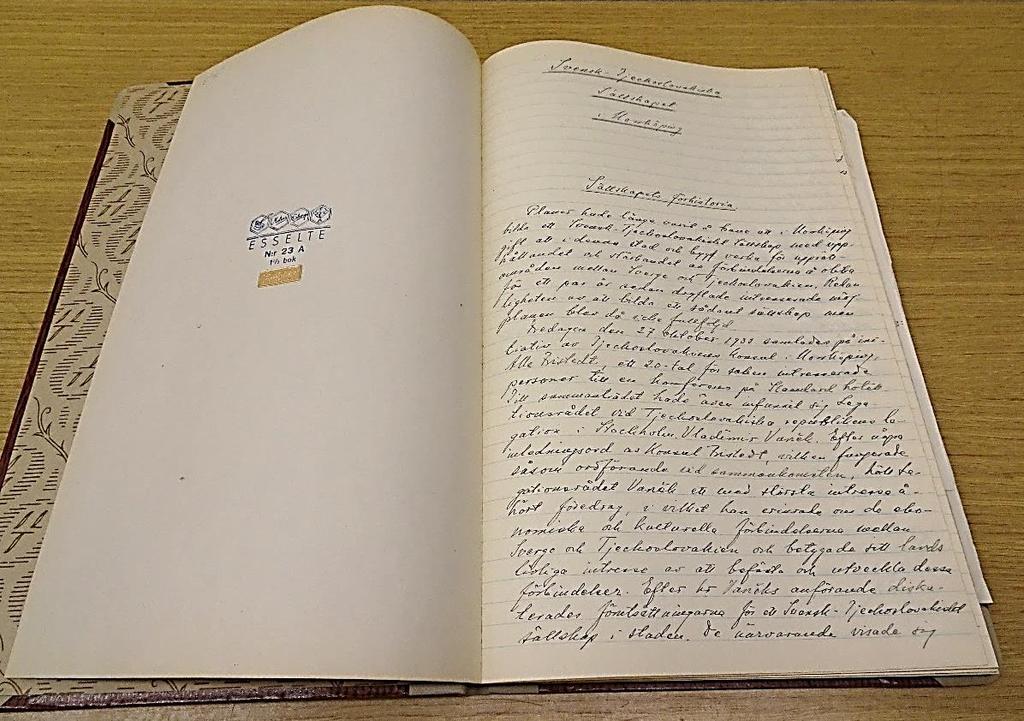 ESSELTE
N:r 23 A
1½ bok
Svensk-Tjechoslovakiska
Sällskapet
i Norrköping
Sällskapets förhistoria
Planer hade länge varit å bane att i Norrköping
bilda ett Svensk-Tjechoslovakiskt Sällskap med upp-
gift att i denna stad och bygd verka för upprät-
hållandet och stärkandet av förbindelserna å olika
områden mellan Sverge och Tjechoslovakien. Redan
för ett par år sedan dryftade intresserade möj-
ligheten av att bilda ett sådant sällskap men
planen blev då icke fullföljd.
Fredagen den 27 oktober 1933 samlades på ini-
tiativ av Tjechoslovakiens Konsul i Norrköping,
ett 20-tal för saken intresserade
personer till en konferens på Standard hotel.
Till sammanträdet hade även infunnit sig Lega-
tionsrådet vid Tjechoslovakiska republikens le-
gation i Stockholm, Vladimir Vanĕk. Efter några
inledningsord av Konsul vilken fungerade
såsom ordförande vid sammankomsten, höll Le-
gationsrådet Vanĕk ett med största intresse å-
hört föredrag, i vilket han erinrade om de eko-
nomiska och kulturella förbindelserna mellan
Sverge och Tjechoslovakien och betygade sitt
livliga intresse av att befästa och utveckla dessa
förbindelser. Efter hr Vanĕks anförande disku-
terades förutsättningarna för ett Svensk-Tjechoslovakiskt
sällskap i staden. De närvarande visade sig